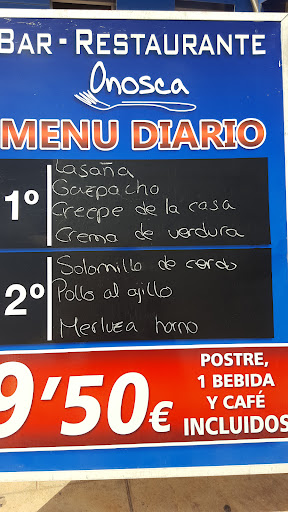 BAR - RESTAURANTE
Onosca
MENU DIARIO
1º
Lasaña
Gazpacho
Creepe de la casa
Crema de verdura
2º
Solomillo de cerdo
Pollo al ajillo
Merluza horno
9'50€
POSTRE,
1 BEBIDA
Y CAFÉ
INCLUIDOS